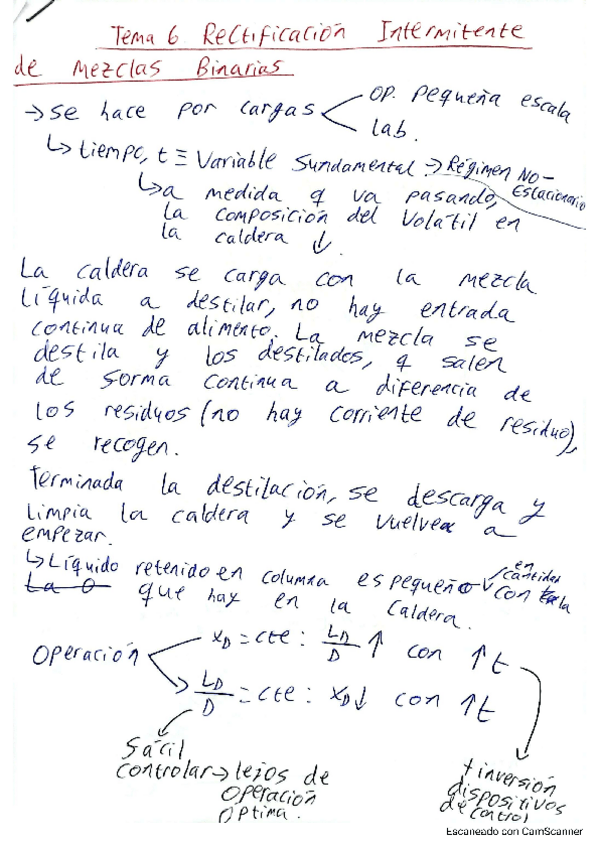 Tema 6 Rectificación Intermitente
de Mezclas Binarias
→ se hace por cargas
OP. pequeña escala
lab.
↳ tiempo, t ≡ Variable Fundamental → Régimen NO-
Estacionario
↳ a medida q va pasando,
la composición del volátil en
la caldera ↓.
La caldera se carga con la mezcla
líquida a destilar, no hay entrada
continua de alimento. La mezcla se
destila y los destilados, q salen
de forma continua a diferencia de
los residuos (no hay corriente de residuo),
se recogen.
Terminada la destilación, se descarga y
limpia la caldera y se vuelve a
empezar.
↳ Líquido retenido en columna es pequeño en cantidad
La O que hay en la caldera. con la
Operación
x_D = cte : L_D/D ↑ con ↑ t
L_D/D = cte : x_D ↓ con ↑ t
fácil
controlar → lejos de
operación
óptima.
+ inversión
dispositivos
de control
Escaneado con CamScanner